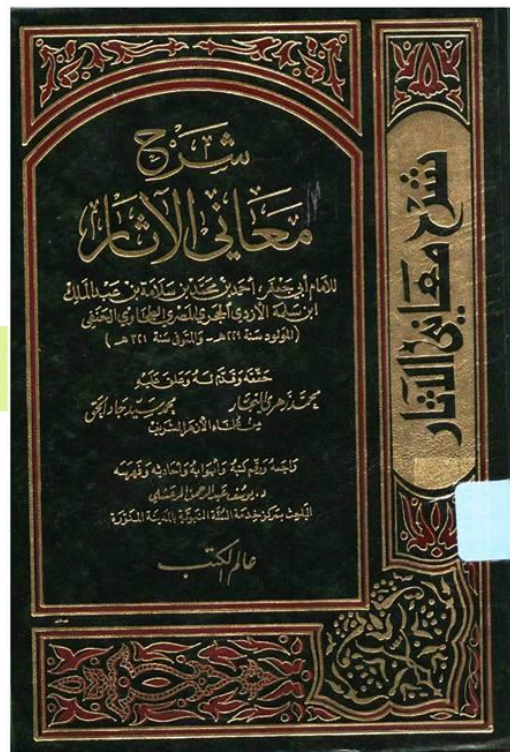 شرح
معاني الآثار
للامام أبي جعفر، أحمد بن محمد بن سلامة بن عبد الملك
ابن سلمة الأزدي الحجري المصري الطحاوي الحنفي
(المولود سنة ٢٢٩هـ - والمتوفى سنة ٣٢١ هـ)
حققه وقدم له وعلق عليه
محمد زهري النجار محمد سيد جاد الحق
من علماء الأزهر الشريف
راجعه ورقم كتبه وأبوابه وأحاديثه وفهرسه
د. يوسف عبد الرحمن المرعشلي
الباحث بمركز خدمة السنة النبوية بالمدينة المنورة
عالم الكتب
شرح معاني الآثار